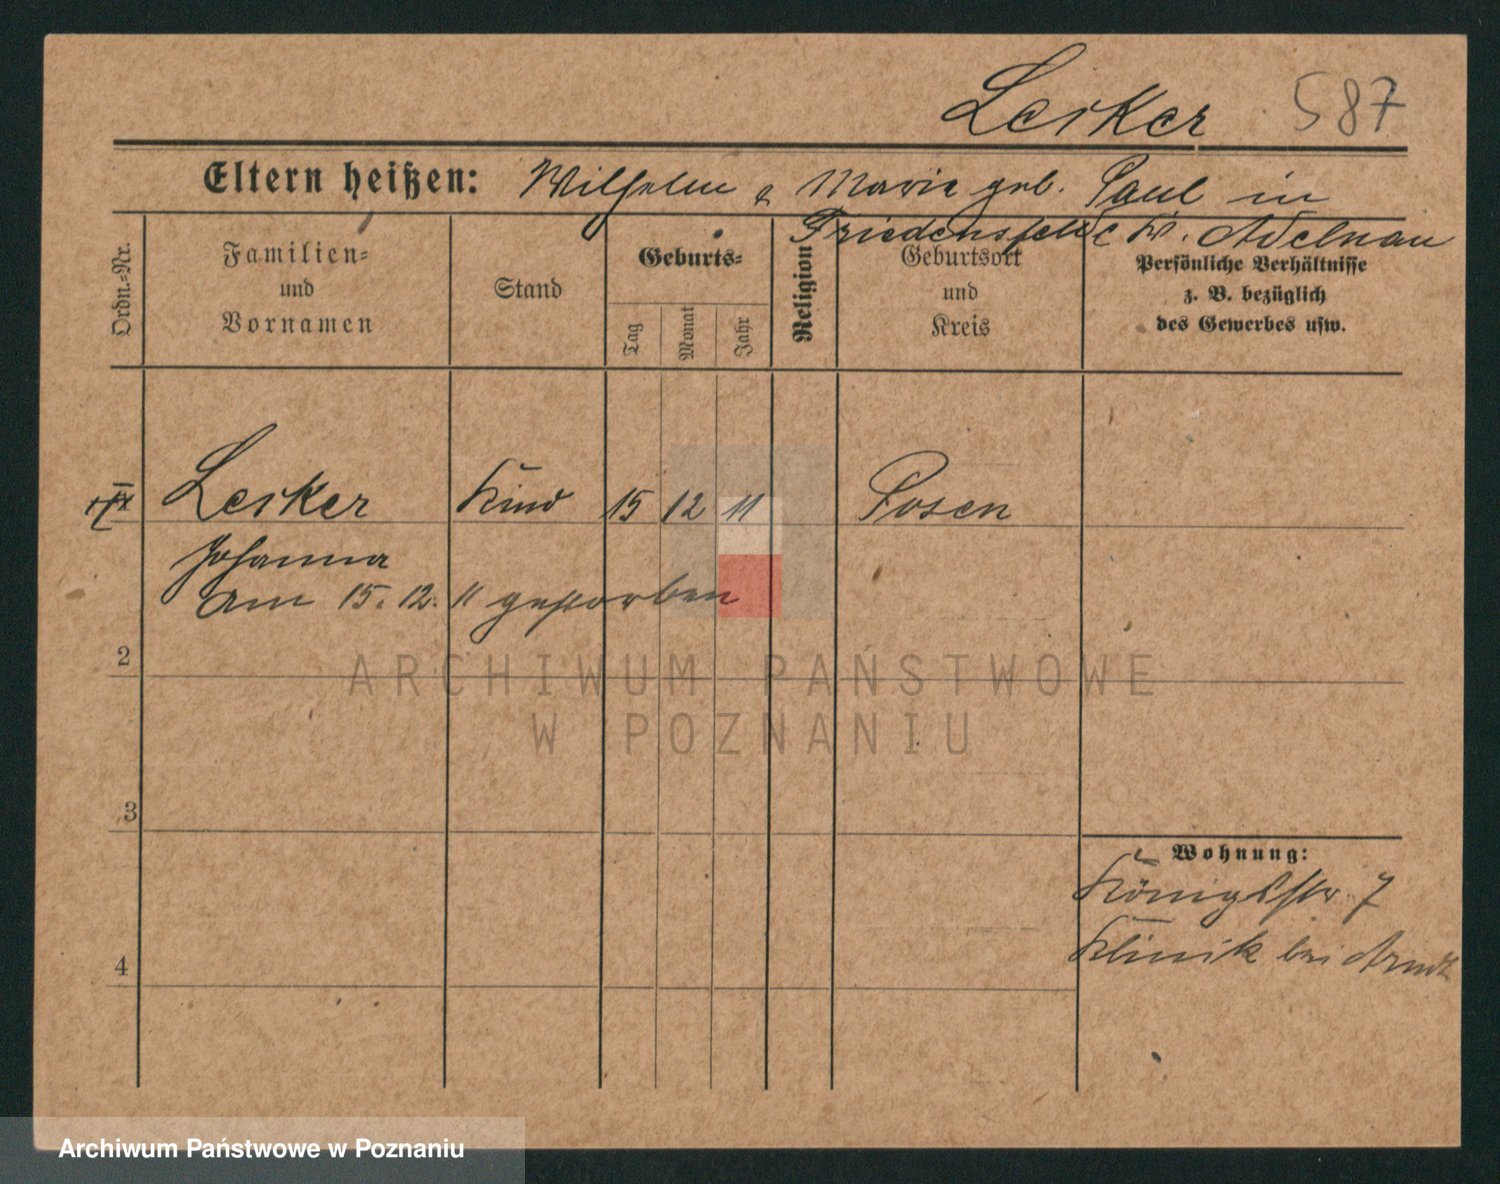 Lesker 587
Eltern heißen: Wilhelm & Marie geb. Paul in
Friedensfelde Kr. Adelnau
Ordn.-Nr.
Familien-
und
Vornamen
Stand
Geburts-
Tag
Monat
Jahr
Religion
Geburtsort
und
Kreis
Persönliche Verhältnisse
z. B. bezüglich
des Gewerbes usw.
Lesker Kind 15 12 11 Posen
Johanna
am 15. 12. 11 gestorben
2
ARCHIWUM PAŃSTWOWE
W POZNANIU
3
Wohnung:
Königsstr 7
Klinik bei Arndt
4
Archiwum Państwowe w Poznaniu